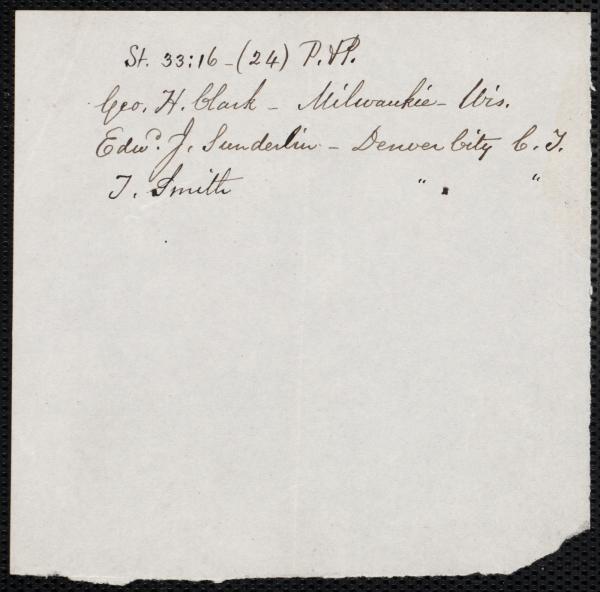 St. 33:16 - (24) P. & P.
Geo. H. Clark - Milwaukie - Wis.
Edwd. J. Sunderlin - Denver City C. T.
T. Smith " " "